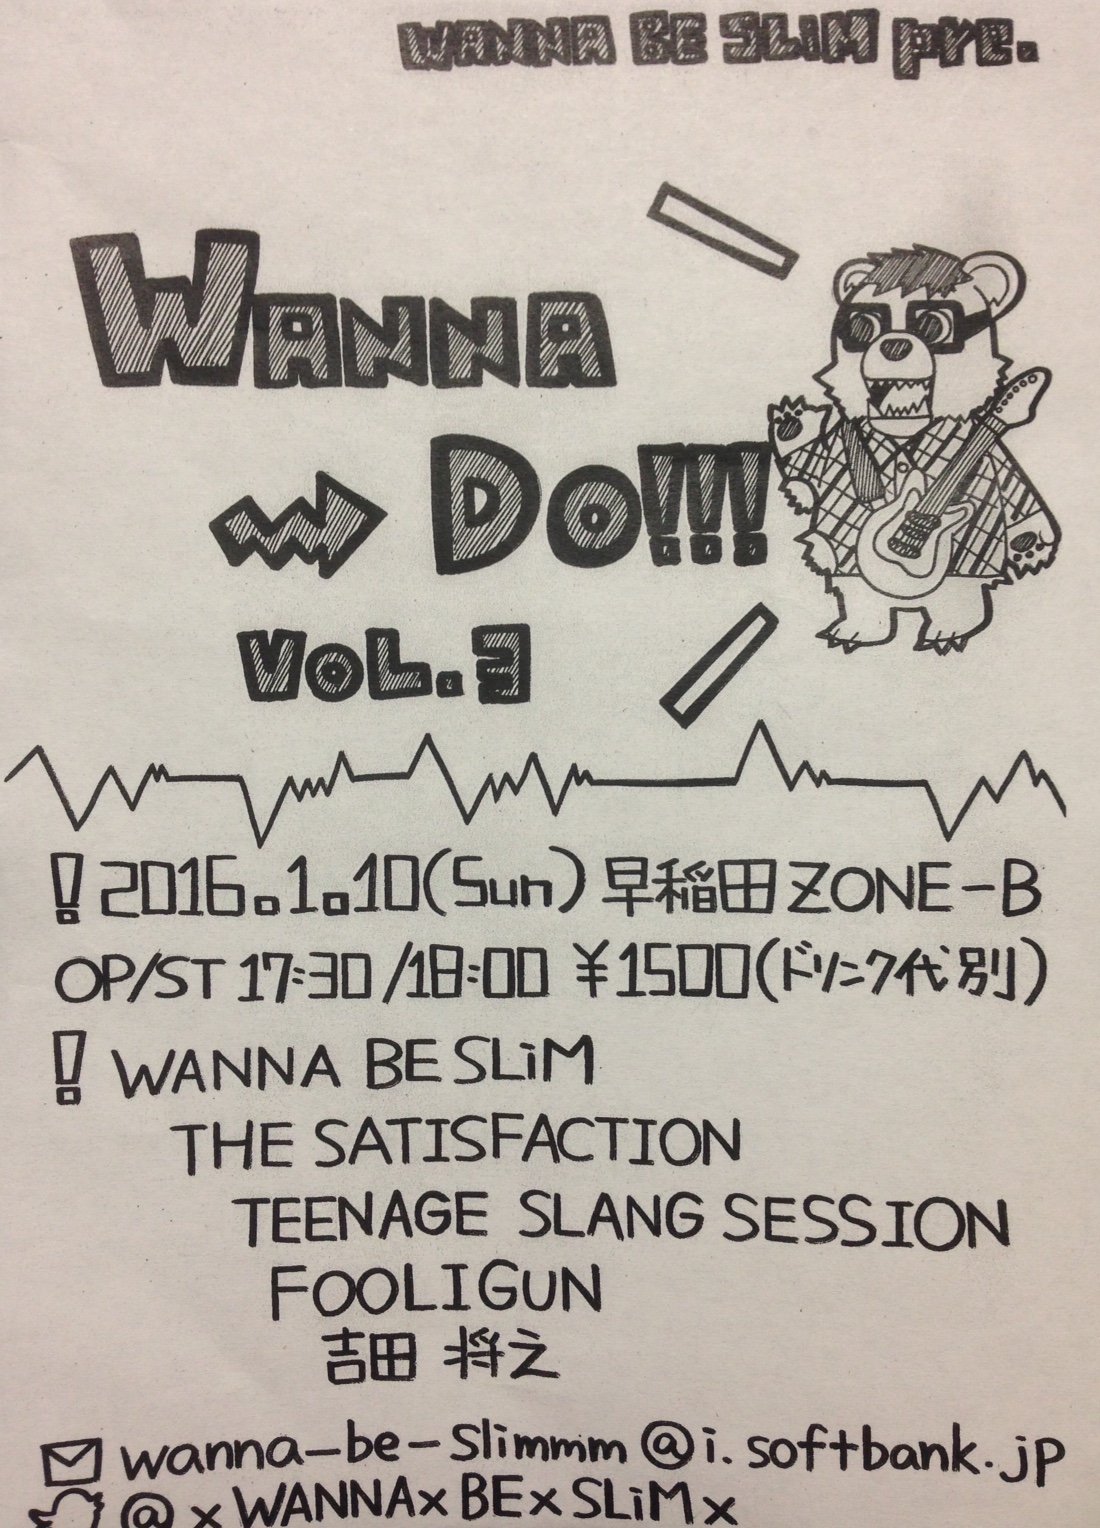 WANNA BE SLiM pre.
WANNA
Do!!!
VOL.3
! 2016.1.10(Sun) 早稲田 ZONE-B
OP/ST 17:30/18:00 ¥1500(ドリンク代別)
! WANNA BE SLiM
THE SATISFACTION
TEENAGE SLANG SESSION
FOOLIGUN
吉田 将之
wanna-be-slimmm@i.softbank.jp
@xWANNAxBExSLiMx